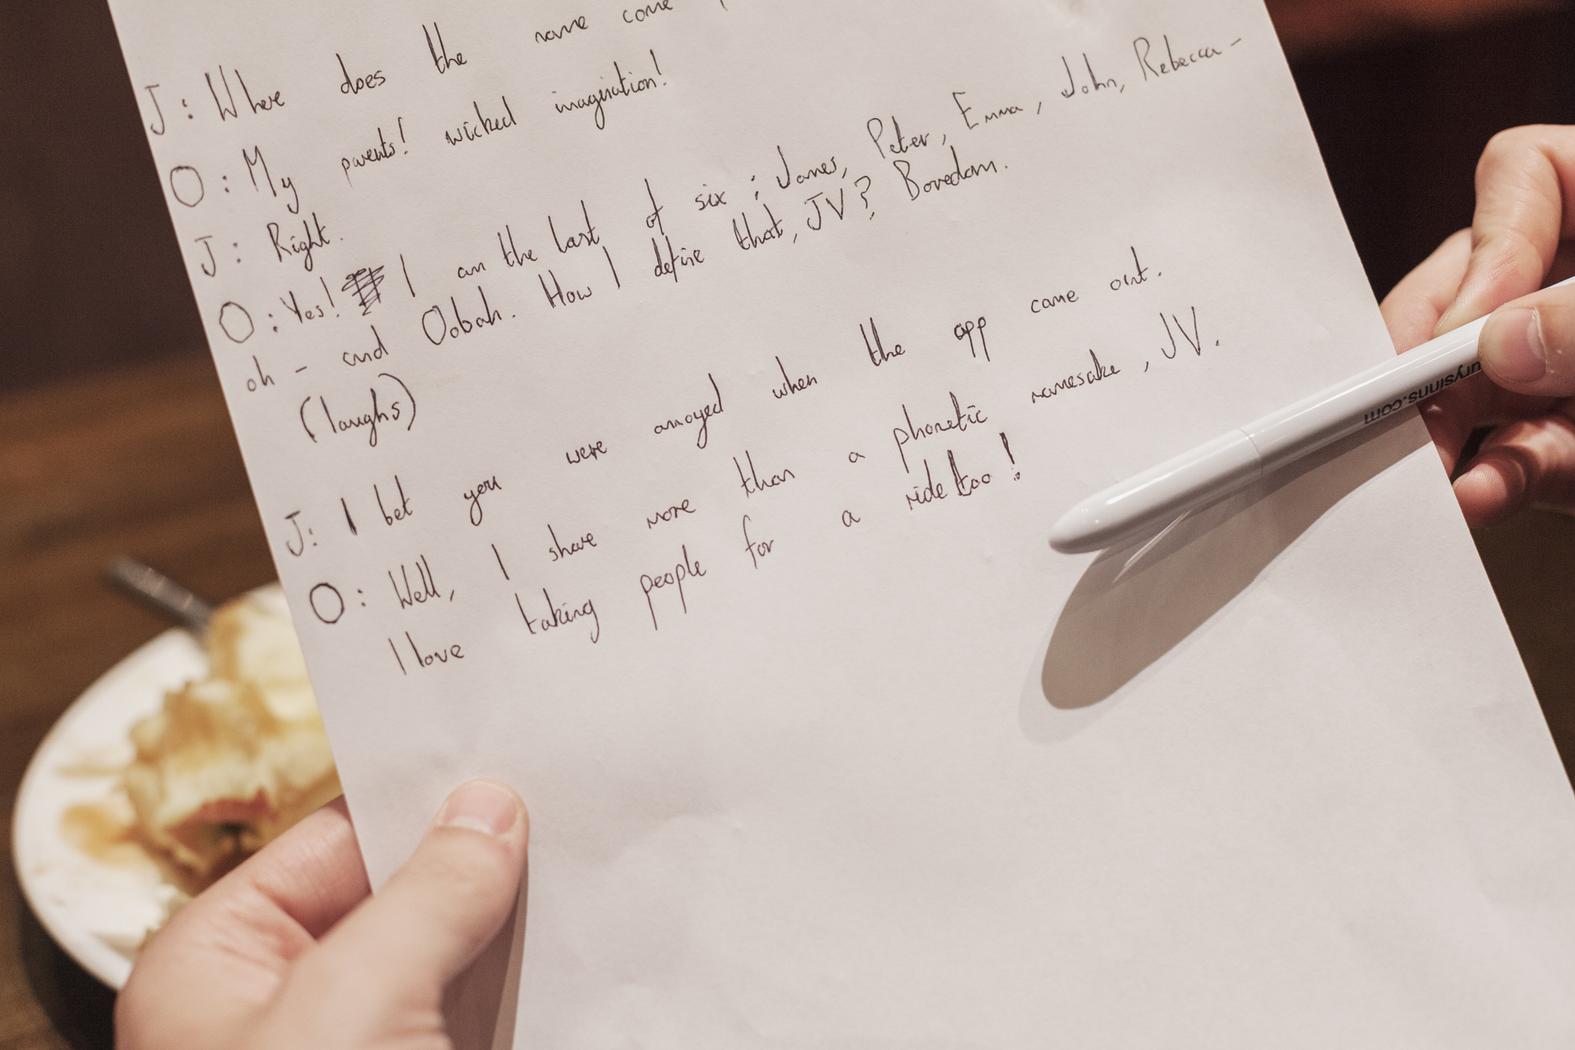 J: Where does the name come
O: My parents! wicked imagination!
J: Right.
O: Yes! I am the last of six; James, Peter, Emma, John, Rebecca -
oh - and Oobah. How I define that, JV? Boredom.
(laughs)
J: I bet you were annoyed when the app came out.
O: Well, I share more than a phonetic namesake, JV.
I love taking people for a ride too!
urysinns.com